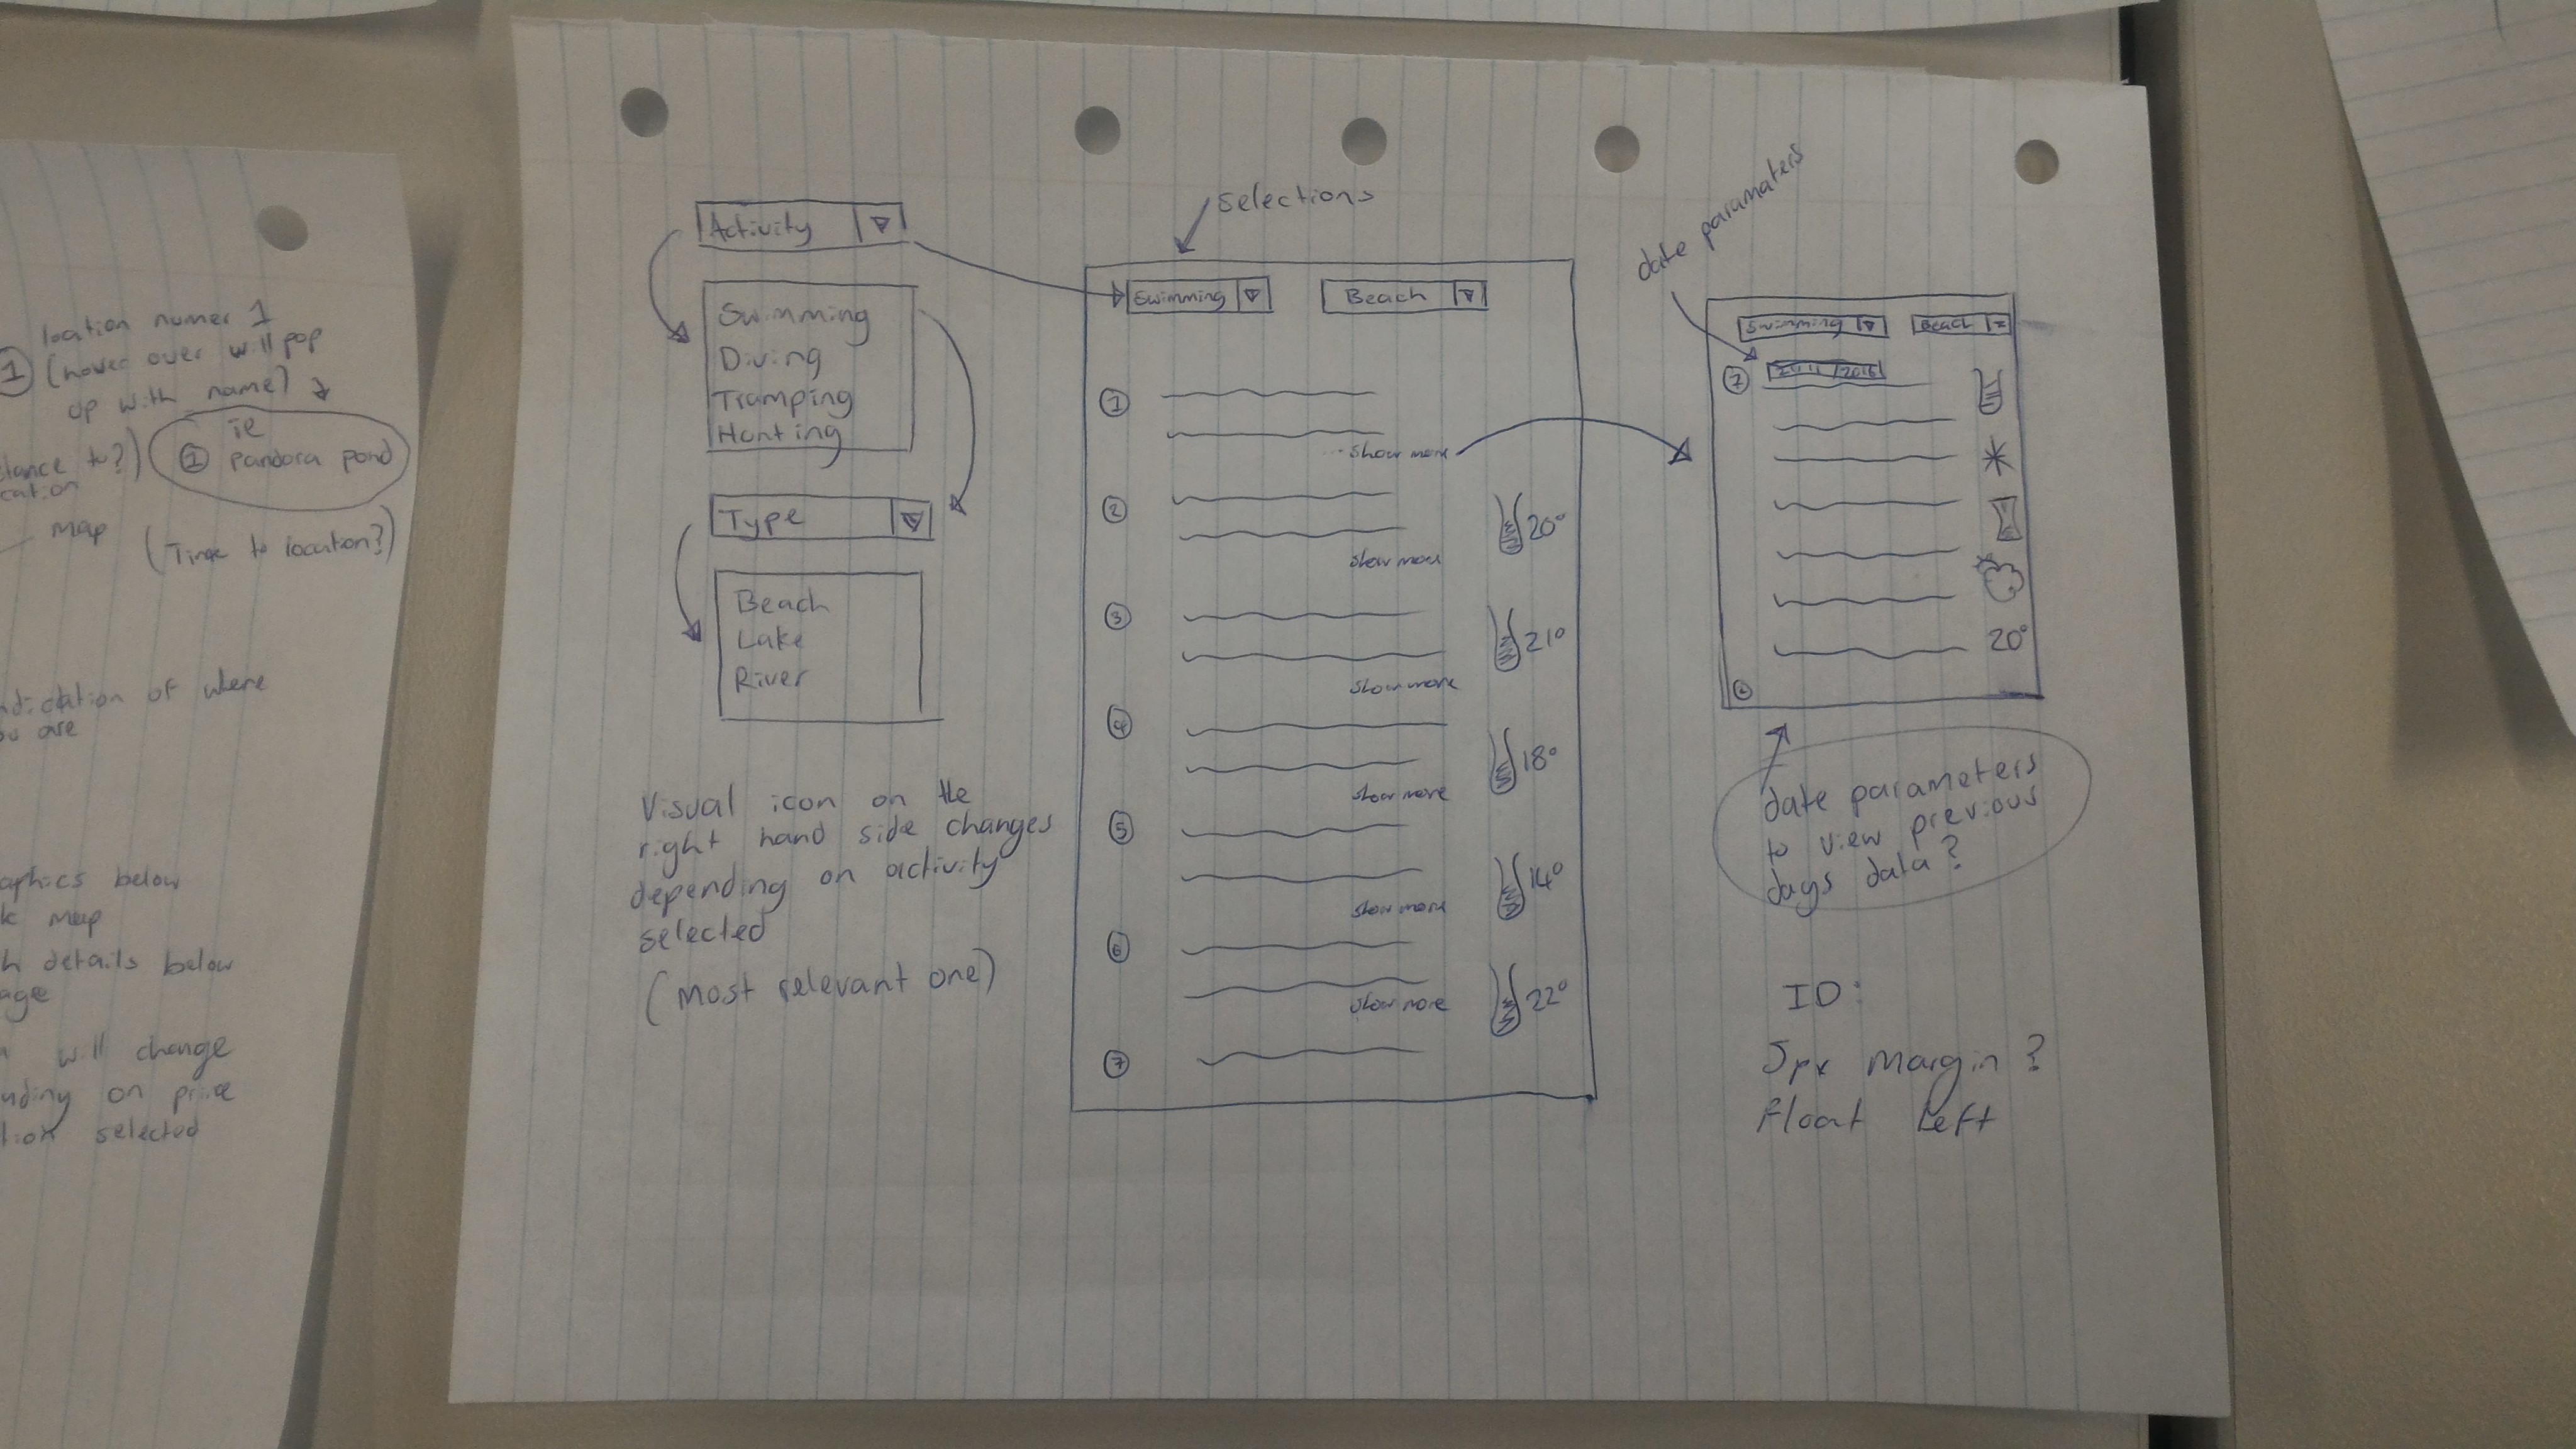 location numer 1
1 (hover over will pop
up with name)
ie
1 pandora pond
to?)
Map
(Time to location?)
of where
are
below
Map
details below
will change
on
selected
Activity
Swimming
Diving
Tramping
Hunting
Type
Beach
Lake
River
Visual icon on the
right hand side changes
depending on activity
selected
(most relevant one)
selections
Swimming Beach
1
show more
2
20°
show more
3
21°
show more
4
18°
show more
5
14°
show more
6
22°
show more
7
date paramaters
Swimming Beach
2016
20°
date parameters
to view previous
days data?
ID:
5px Margin?
Float Left